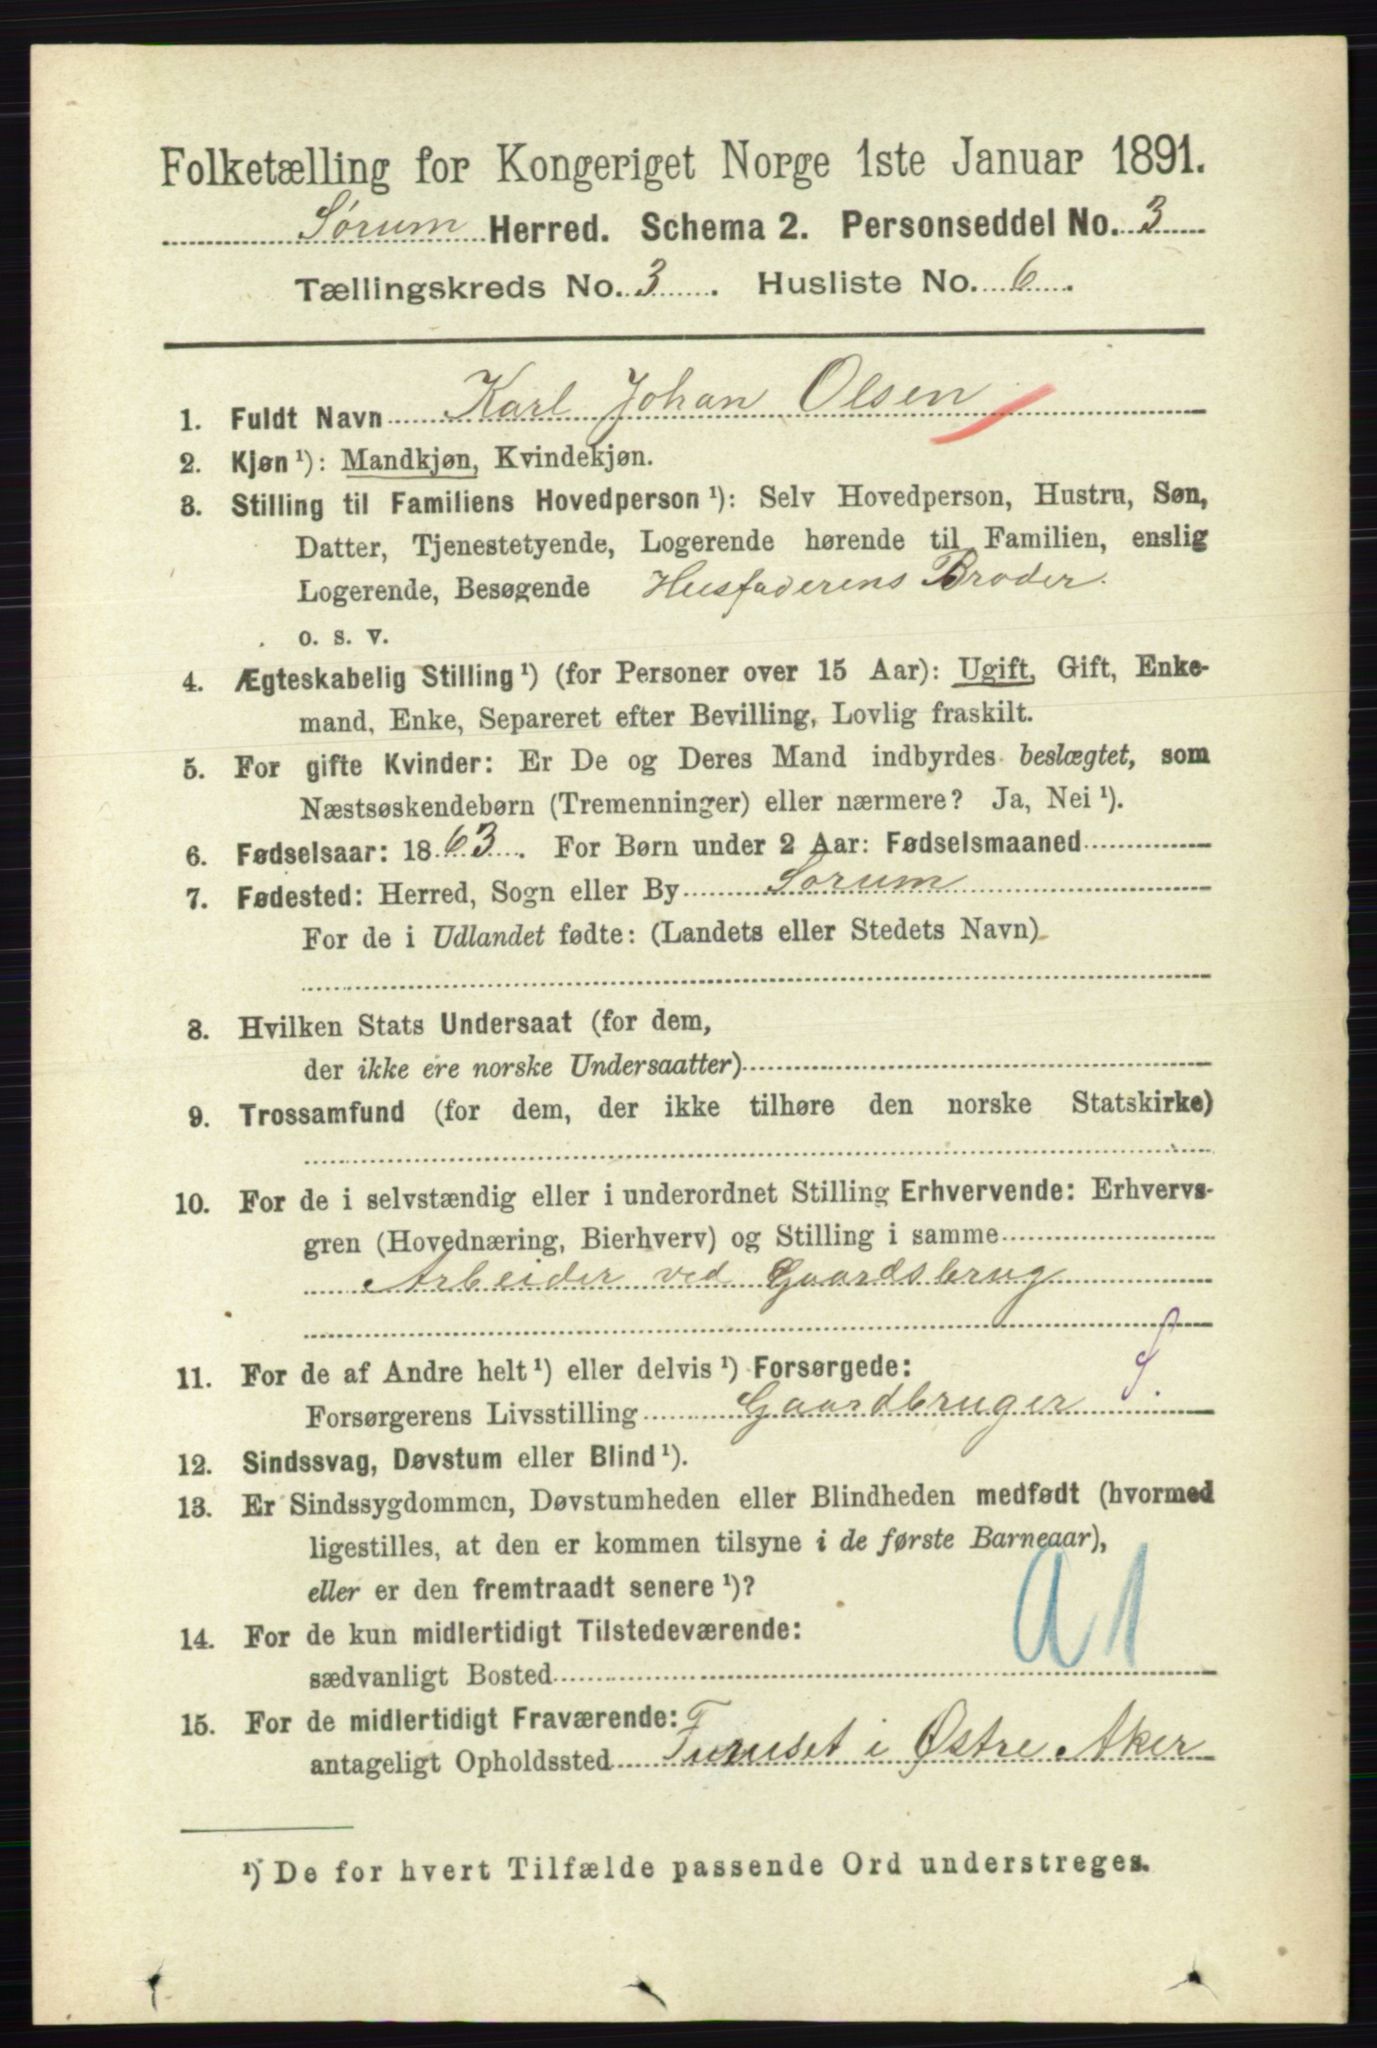 Folketælling for Kongeriget Norge 1ste Januar 1891.
Sørum Herred. Schema 2. Personseddel No. 3
Tællingskreds No. 3. Husliste No. 6.
1. Fuldt Navn Karl Johan Olsen
2. Kjøn¹): Mandkjøn, Kvindekjøn.
3. Stilling til Familiens Hovedperson¹): Selv Hovedperson, Hustru, Søn,
Datter, Tjenestetyende, Logerende hørende til Familien, enslig
Logerende, Besøgende Husfaderens Broder.
o. s. v.
4. Ægteskabelig Stilling¹) (for Personer over 15 Aar): Ugift, Gift, Enke-
mand, Enke, Separeret efter Bevilling, Lovlig fraskilt.
5. For gifte Kvinder: Er De og Deres Mand indbyrdes beslægtet, som
Næstsøskendebørn (Tremenninger) eller nærmere? Ja, Nei¹).
6. Fødselsaar: 1863. For Børn under 2 Aar: Fødselsmaaned
7. Fødested: Herred, Sogn eller By Sorum
For de i Udlandet fødte: (Landets eller Stedets Navn)
8. Hvilken Stats Undersaat (for dem,
der ikke ere norske Undersaatter)
9. Trossamfund (for dem, der ikke tilhøre den norske Statskirke)
10. For de i selvstændig eller i underordnet Stilling Erhvervende: Erhvervs-
gren (Hovednæring, Bierhverv) og Stilling i samme
Arbeider ved Gaardsbrug
11. For de af Andre helt¹) eller delvis¹) Forsørgede:
Forsørgerens Livsstilling Gaardbruger
12. Sindssvag, Døvstum eller Blind¹).
13. Er Sindssygdommen, Døvstumheden eller Blindheden medfødt (hvormed
ligestilles, at den er kommen tilsyne i de første Barneaar),
eller er den fremtraadt senere¹)?
a 1
14. For de kun midlertidigt Tilstedeværende:
sædvanligt Bosted
15. For de midlertidigt Fraværende:
antageligt Opholdssted Furuset i Østre Aker
¹) De for hvert Tilfælde passende Ord understreges.